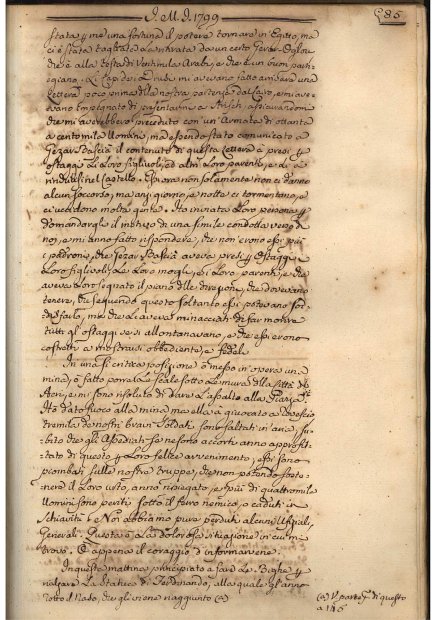 I. M. I. 1799
585
stata p me una fortuna il potere tornare in Egitto, ma
ci è stata tagliata la ritirata da un certo Gezar-Oglou
che è alla testa di ventimila Arabi, e che è un buon parti-
giano. Li Capi de' mi avevano fatto arrivare una
lettera poco prima della nostra partenza dal Cairo, e mi ave-
vano impegnato di presentarmi a Arisch, assicurandomi
che mi averebbero preceduto con un' Armata di ottanta
a centomila Uomini, ma essendo stato comunicato a
Gezar Bascià il contenuto di questa lettera à presi p
ostaggi li loro figliuoli, ed altri loro parenti, e li à
rinchiusi nel Castello. Ed ora non solamente non ci danno
alcun soccorso, ma anzi giorno, e notte ci tormentano, e
ci uccidono molta gente. Ho inviato a loro persona p
domandargli il motivo di una simile condotta verso di
noi, e mi anno fatto rispondere, che non erono essi più
padroni, che Gezar Bascià aveva presi p ostaggi
i loro figliuoli, le loro mogli, e i loro parenti, e che
aveva loro segnato il piano delle direzioni, che dovevano
tenere, che seguendo questo soltanto essi potevano sod-
disfarlo, ma che li aveva minacciati di far morire
tutti gl' ostaggi se si allontanavano, e che essi erono
costretti a mostrarsi obbedienti, e fedeli.
In una sì critica posizione ò messo in opera una
mina, ò fatto portar le scale sotto le mura della Città di
Acri, e mi sono risoluto di dare l'assalto alla Piazza.
Ho dato fuoco alla mina, ma ella à giuocato a rovescio
tremila de' nostri bravi soldati sono saltati in aria, su-
bito che gli Assediati se ne sono accorti anno approfit-
tato di questo p loro felice avvenimento, essi sono
piombati sulle nostre truppe, che non potendo soste-
nere il loro urto, anno ripiegato, e più di quattromila
Uomini sono periti sotto il ferro nemico, o caduti in
schiavitù. E Noi abbiamo pure perduti alcuni Uffizili.
Generali. Questa è la dolorosa situazione in cui mi
trovo. O appena il coraggio d' informarvene.
In questa mattina principiato a fare le Bighe p
rialzare la Statua di Ferdinando, alla quale gli anno
rotto il Naso, che gli viene raggiunto (a)
(a) V. parte di questo
a 115